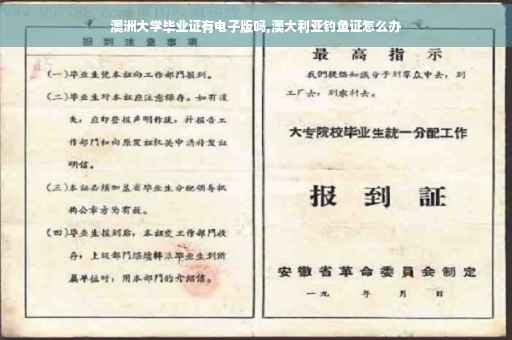 澳洲大学毕业证有电子版吗,澳大利亚钓鱼证怎么办
报到注意事项
(一)毕业生凭本证向工作部门报到。
(二)毕业生对本证应注意保存。如有遗
失,应即登报声明作废,并报告工
作部门和向原发证机关申请补发证
明信。
(三)本证必须加盖省毕业生分配领导机
构公章方为有效。
(四)毕业生报到后,本证交工作部门收
存;上级部门继续转派毕业生到所
属单位时,用本部门的介绍信。
最高指示
我们提倡知识分子到群众中去,到
工厂去,到农村去。
大专院校毕业生统一分配工作
报到证
安徽省革命委员会制定
一九 年 月 日